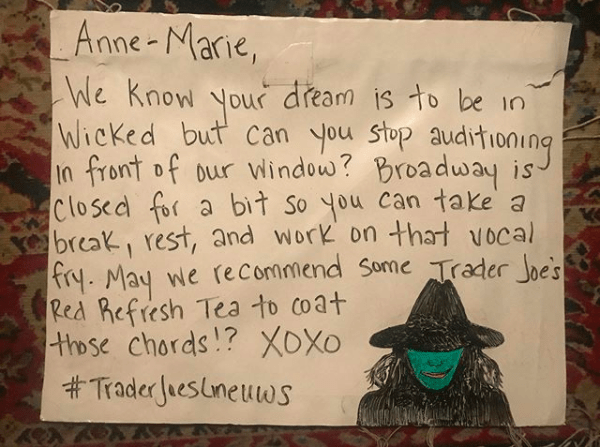 Anne-Marie,
We know your dream is to be in
Wicked but can you stop auditioning
in front of our window? Broadway is
closed for a bit so you can take a
break, rest, and work on that vocal
fry. May we recommend some Trader Joe's
Red Refresh Tea to coat
those chords!? XOXO
#TraderJoesLineuws